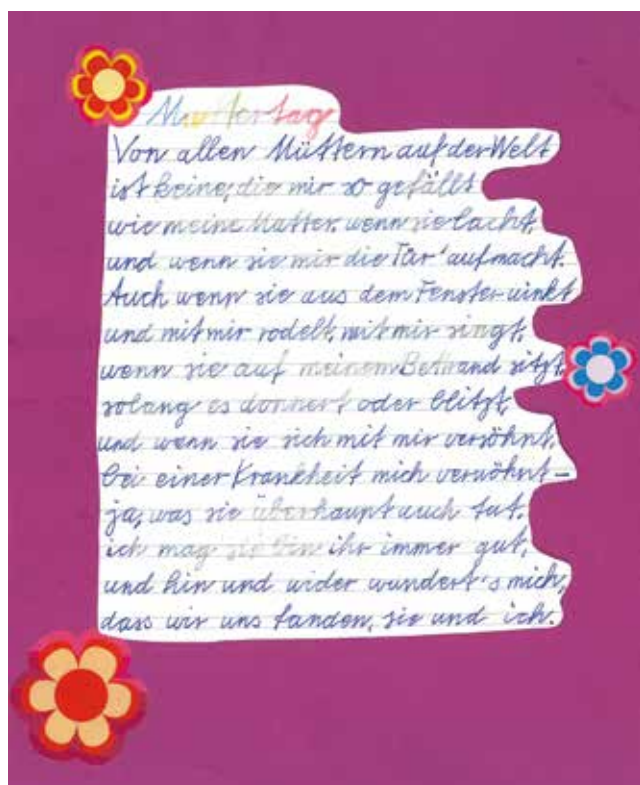 Muttertag
Von allen Müttern auf der Welt
ist keine, die mir so gefällt
wie meine Mutter, wenn sie lacht
und wenn sie mir die Tür' aufmacht.
Auch wenn sie aus dem Fenster winkt
und mit mir rodelt, mit mir singt,
wenn sie auf meinem Bettrand sitzt,
solang es donnert oder blitzt,
und wenn sie sich mit mir versöhnt,
bei einer Krankheit mich verwöhnt –
ja, was sie überhaupt auch tut.
ich mag sie bin ihr immer gut,
und hin und wider wundert's mich,
dass wir uns fanden, sie und ich.